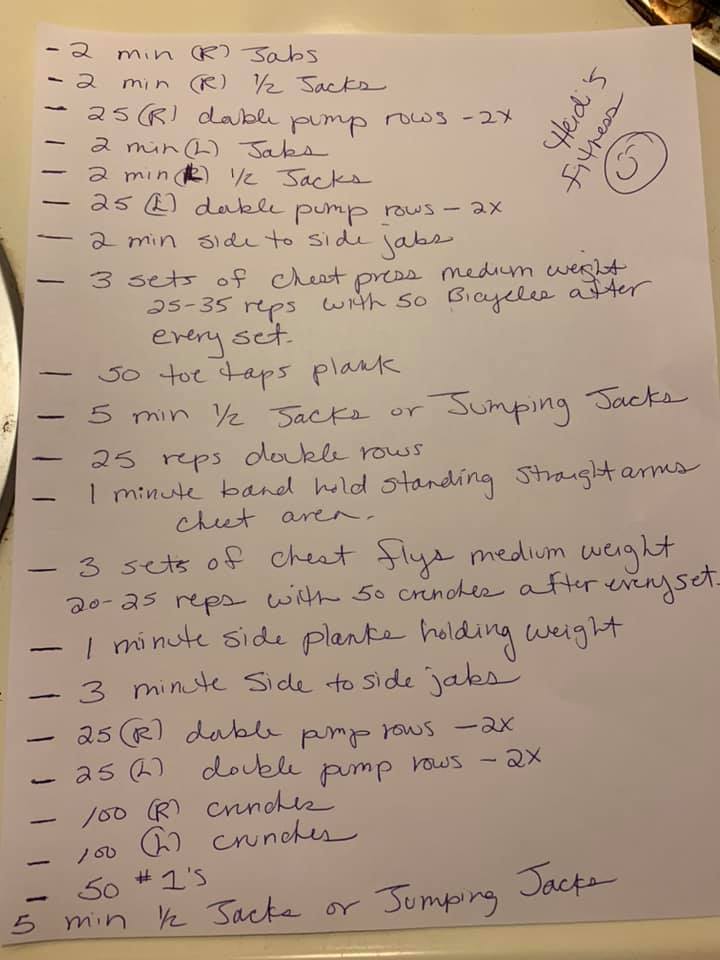 - 2 min (R) Jabs
- 2 min (R) 1/2 Jacks
- 25 (R) double pump rows - 2x
- 2 min (L) Jabs
- 2 min (L) 1/2 Jacks
- 25 (L) double pump rows - 2x
- 2 min side to side jabs
- 3 sets of chest press medium weight
25-35 reps with 50 Bicycles after
every set.
- 50 toe taps plank
- 5 min 1/2 Jacks or Jumping Jacks
- 25 reps double rows
- 1 minute band hold standing straight arms
chest area.
- 3 sets of chest flys medium weight
20-25 reps with 50 crunches after every set.
- 1 minute side planks holding weight
- 3 minute Side to side jabs
- 25 (R) double pump rows - 2x
- 25 (L) double pump rows - 2x
- 100 (R) crunches
- 100 (L) crunches
- 50 #1's
5 min 1/2 Jacks or Jumping Jacks
Heidi's
Fitness